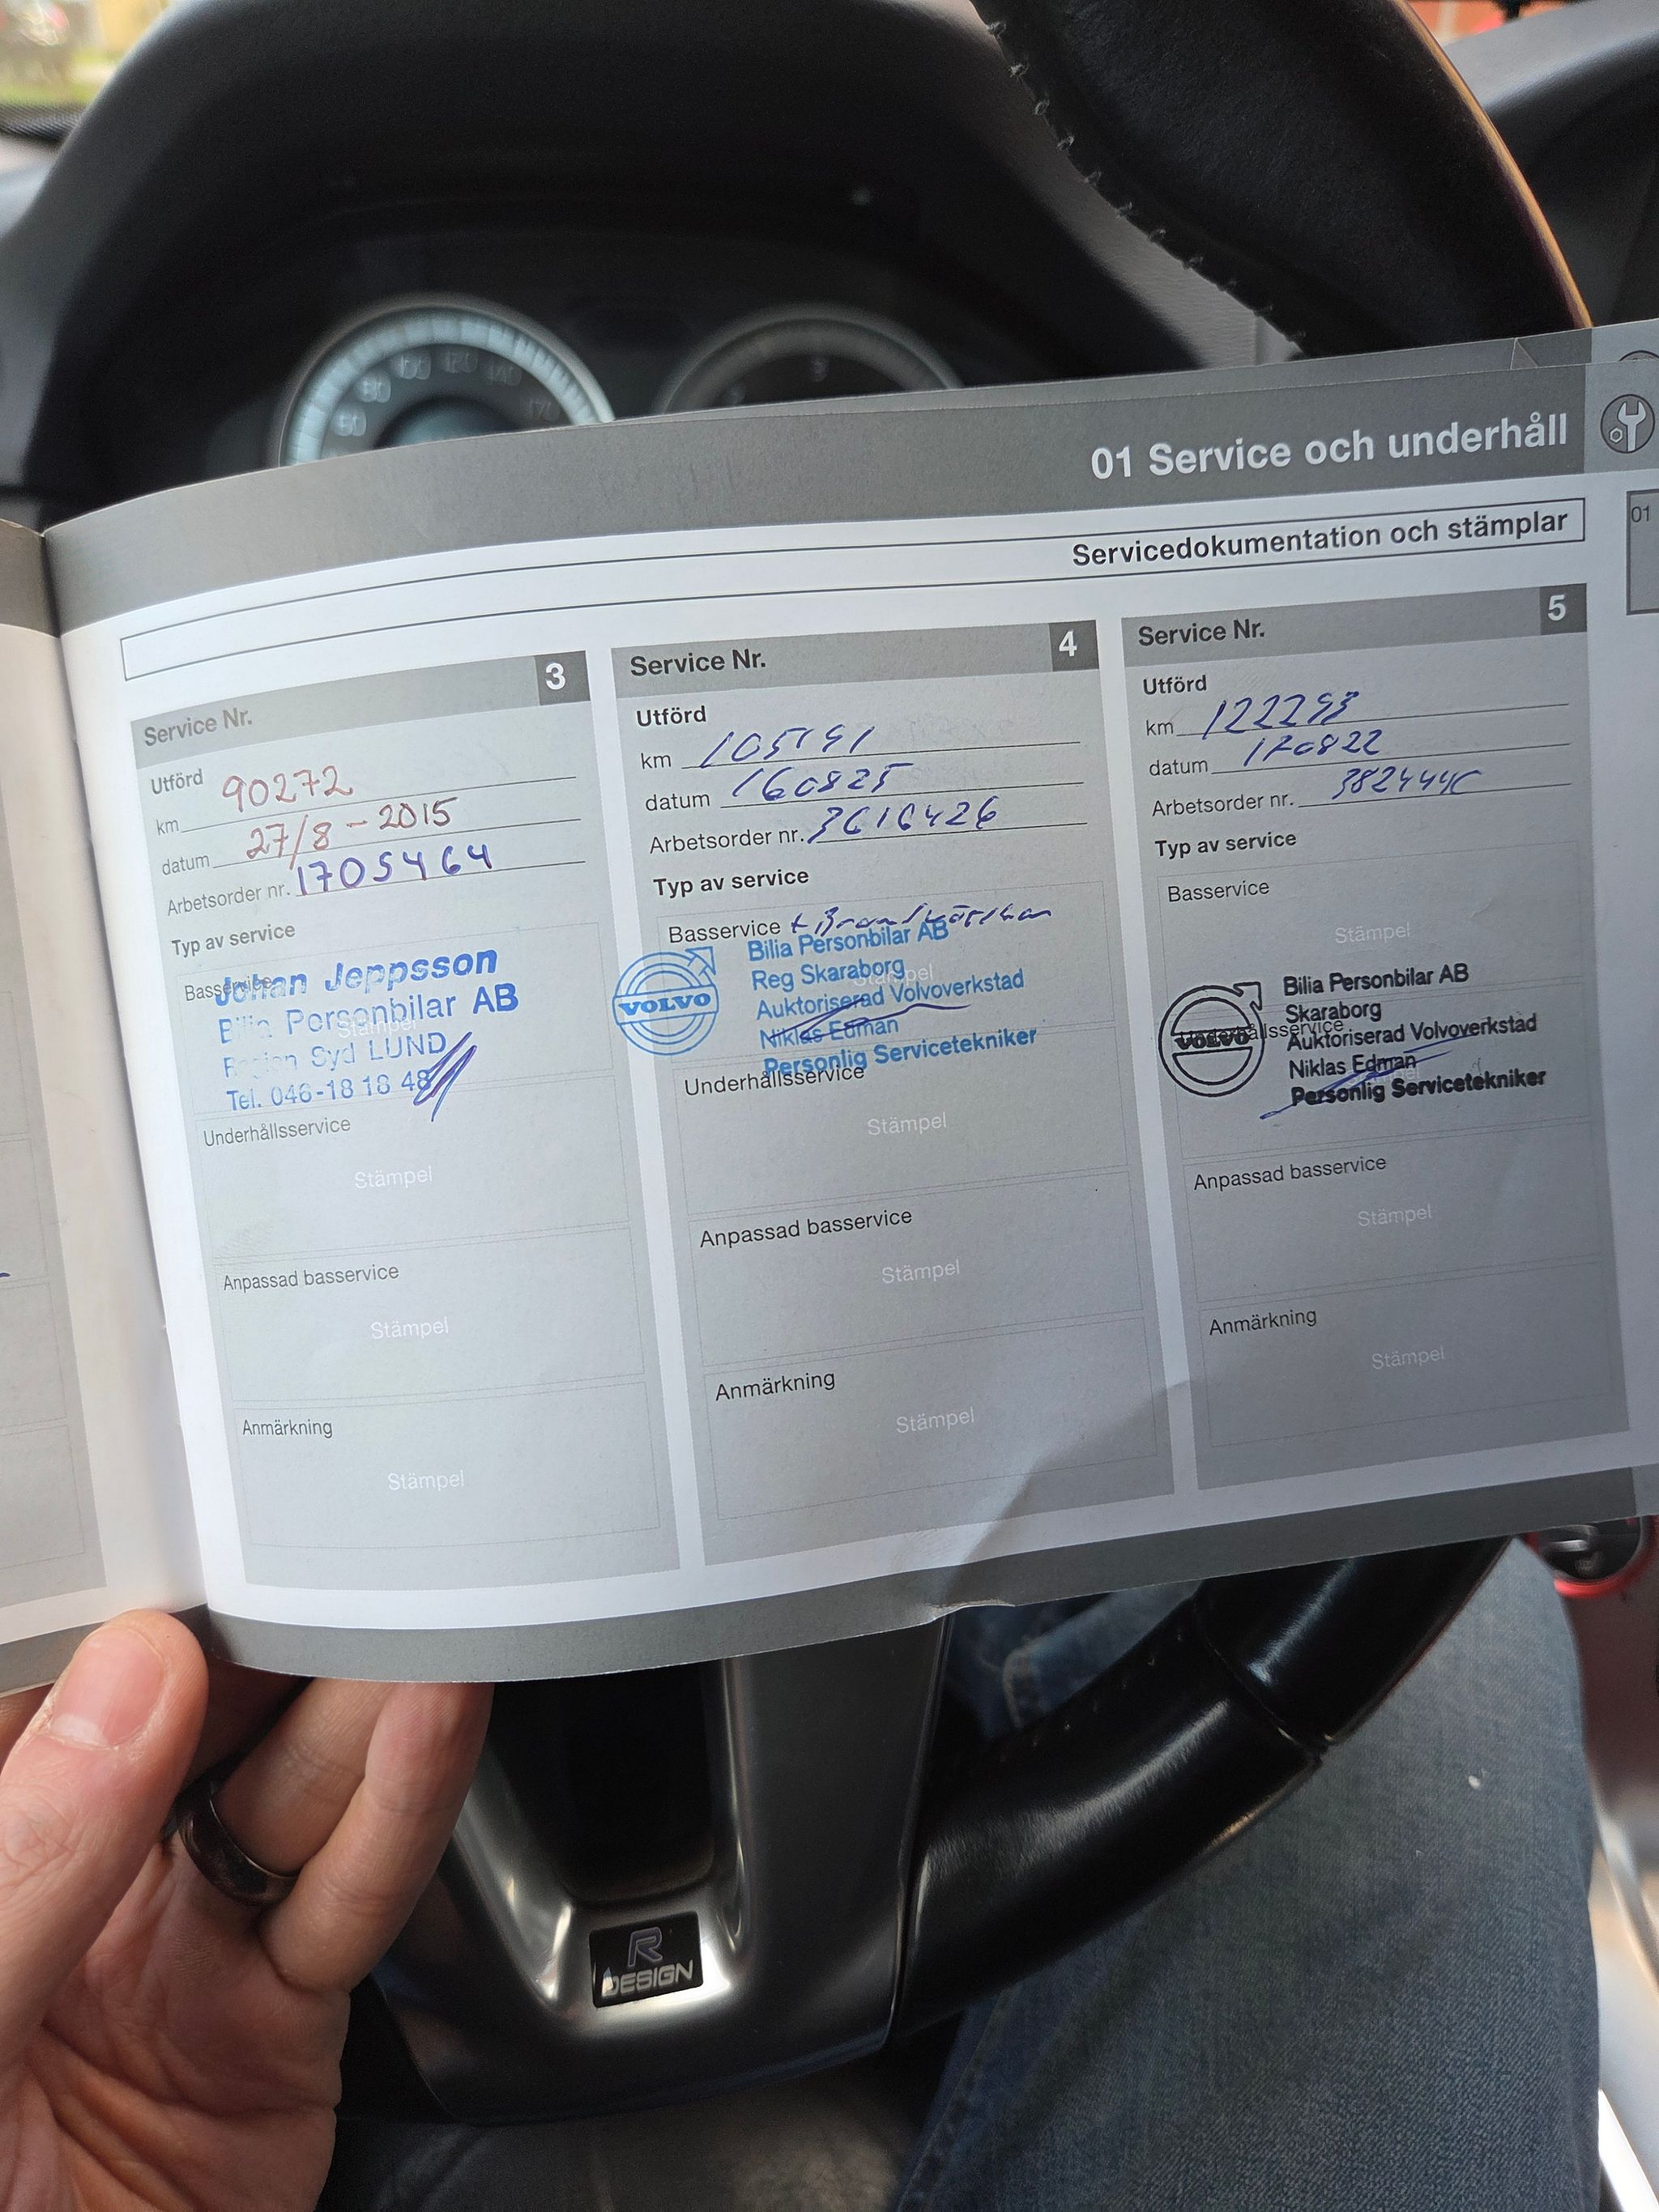 01 Service och underhåll
01
Servicedokumentation och stämplar
Service Nr. 3
Utförd
km 90272
datum 27/8 - 2015
Arbetsorder nr. 1705464
Typ av service
Basservice
Stämpel
Johan Jeppsson
Bilia Personbilar AB
Region Syd LUND
Tel. 046-18 18 48
Underhållsservice
Stämpel
Anpassad basservice
Stämpel
Anmärkning
Stämpel
Service Nr. 4
Utförd
km 105191
datum 160825
Arbetsorder nr. 3616426
Typ av service
Basservice +
Stämpel
VOLVO
Bilia Personbilar AB
Reg Skaraborg
Auktoriserad Volvoverkstad
Niklas Edman
Personlig Servicetekniker
Underhållsservice
Stämpel
Anpassad basservice
Stämpel
Anmärkning
Stämpel
Service Nr. 5
Utförd
km 122293
datum 170822
Arbetsorder nr.
Typ av service
Basservice
Stämpel
Underhållsservice
VOLVO
Bilia Personbilar AB
Skaraborg
Auktoriserad Volvoverkstad
Niklas Edman
Personlig Servicetekniker
Anpassad basservice
Stämpel
Anmärkning
Stämpel
R
DESIGN